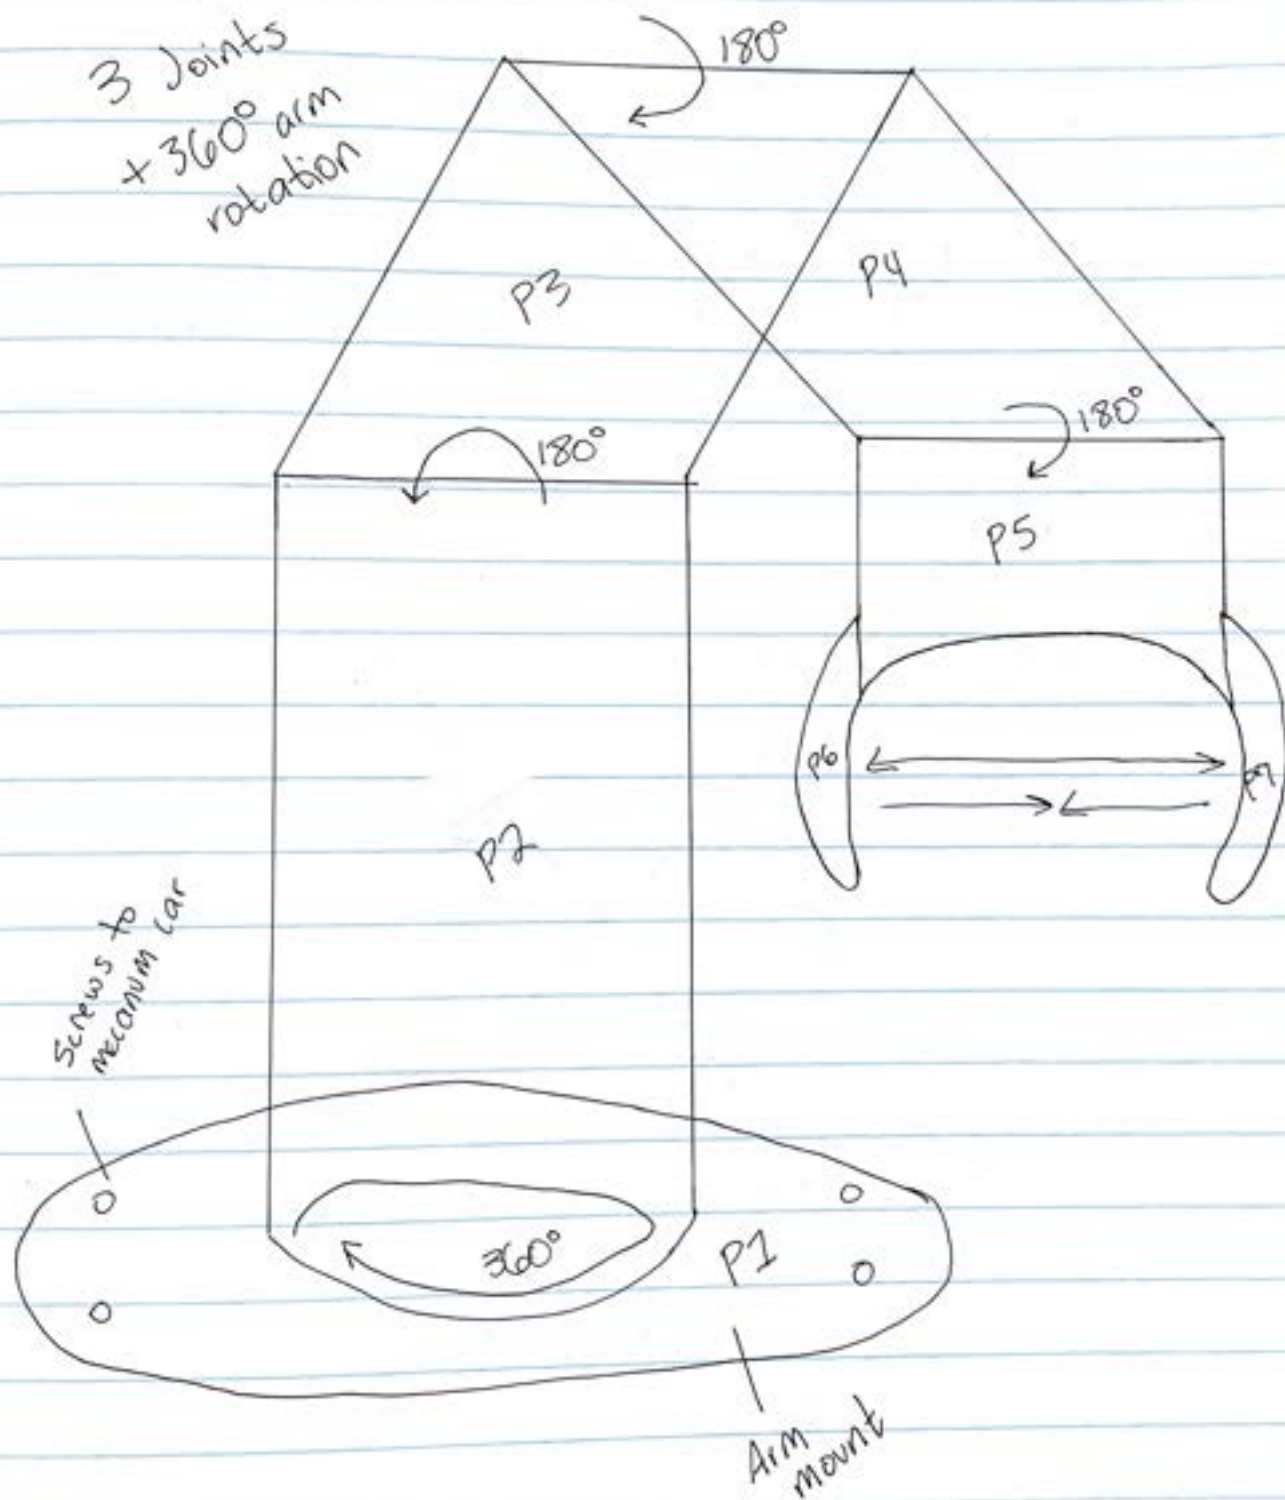 3 Joints
+360° arm
rotation
180°
P3
P4
180°
180°
P5
P6
P7
P2
Screws to
mecanum car
360°
P1
Arm
mount